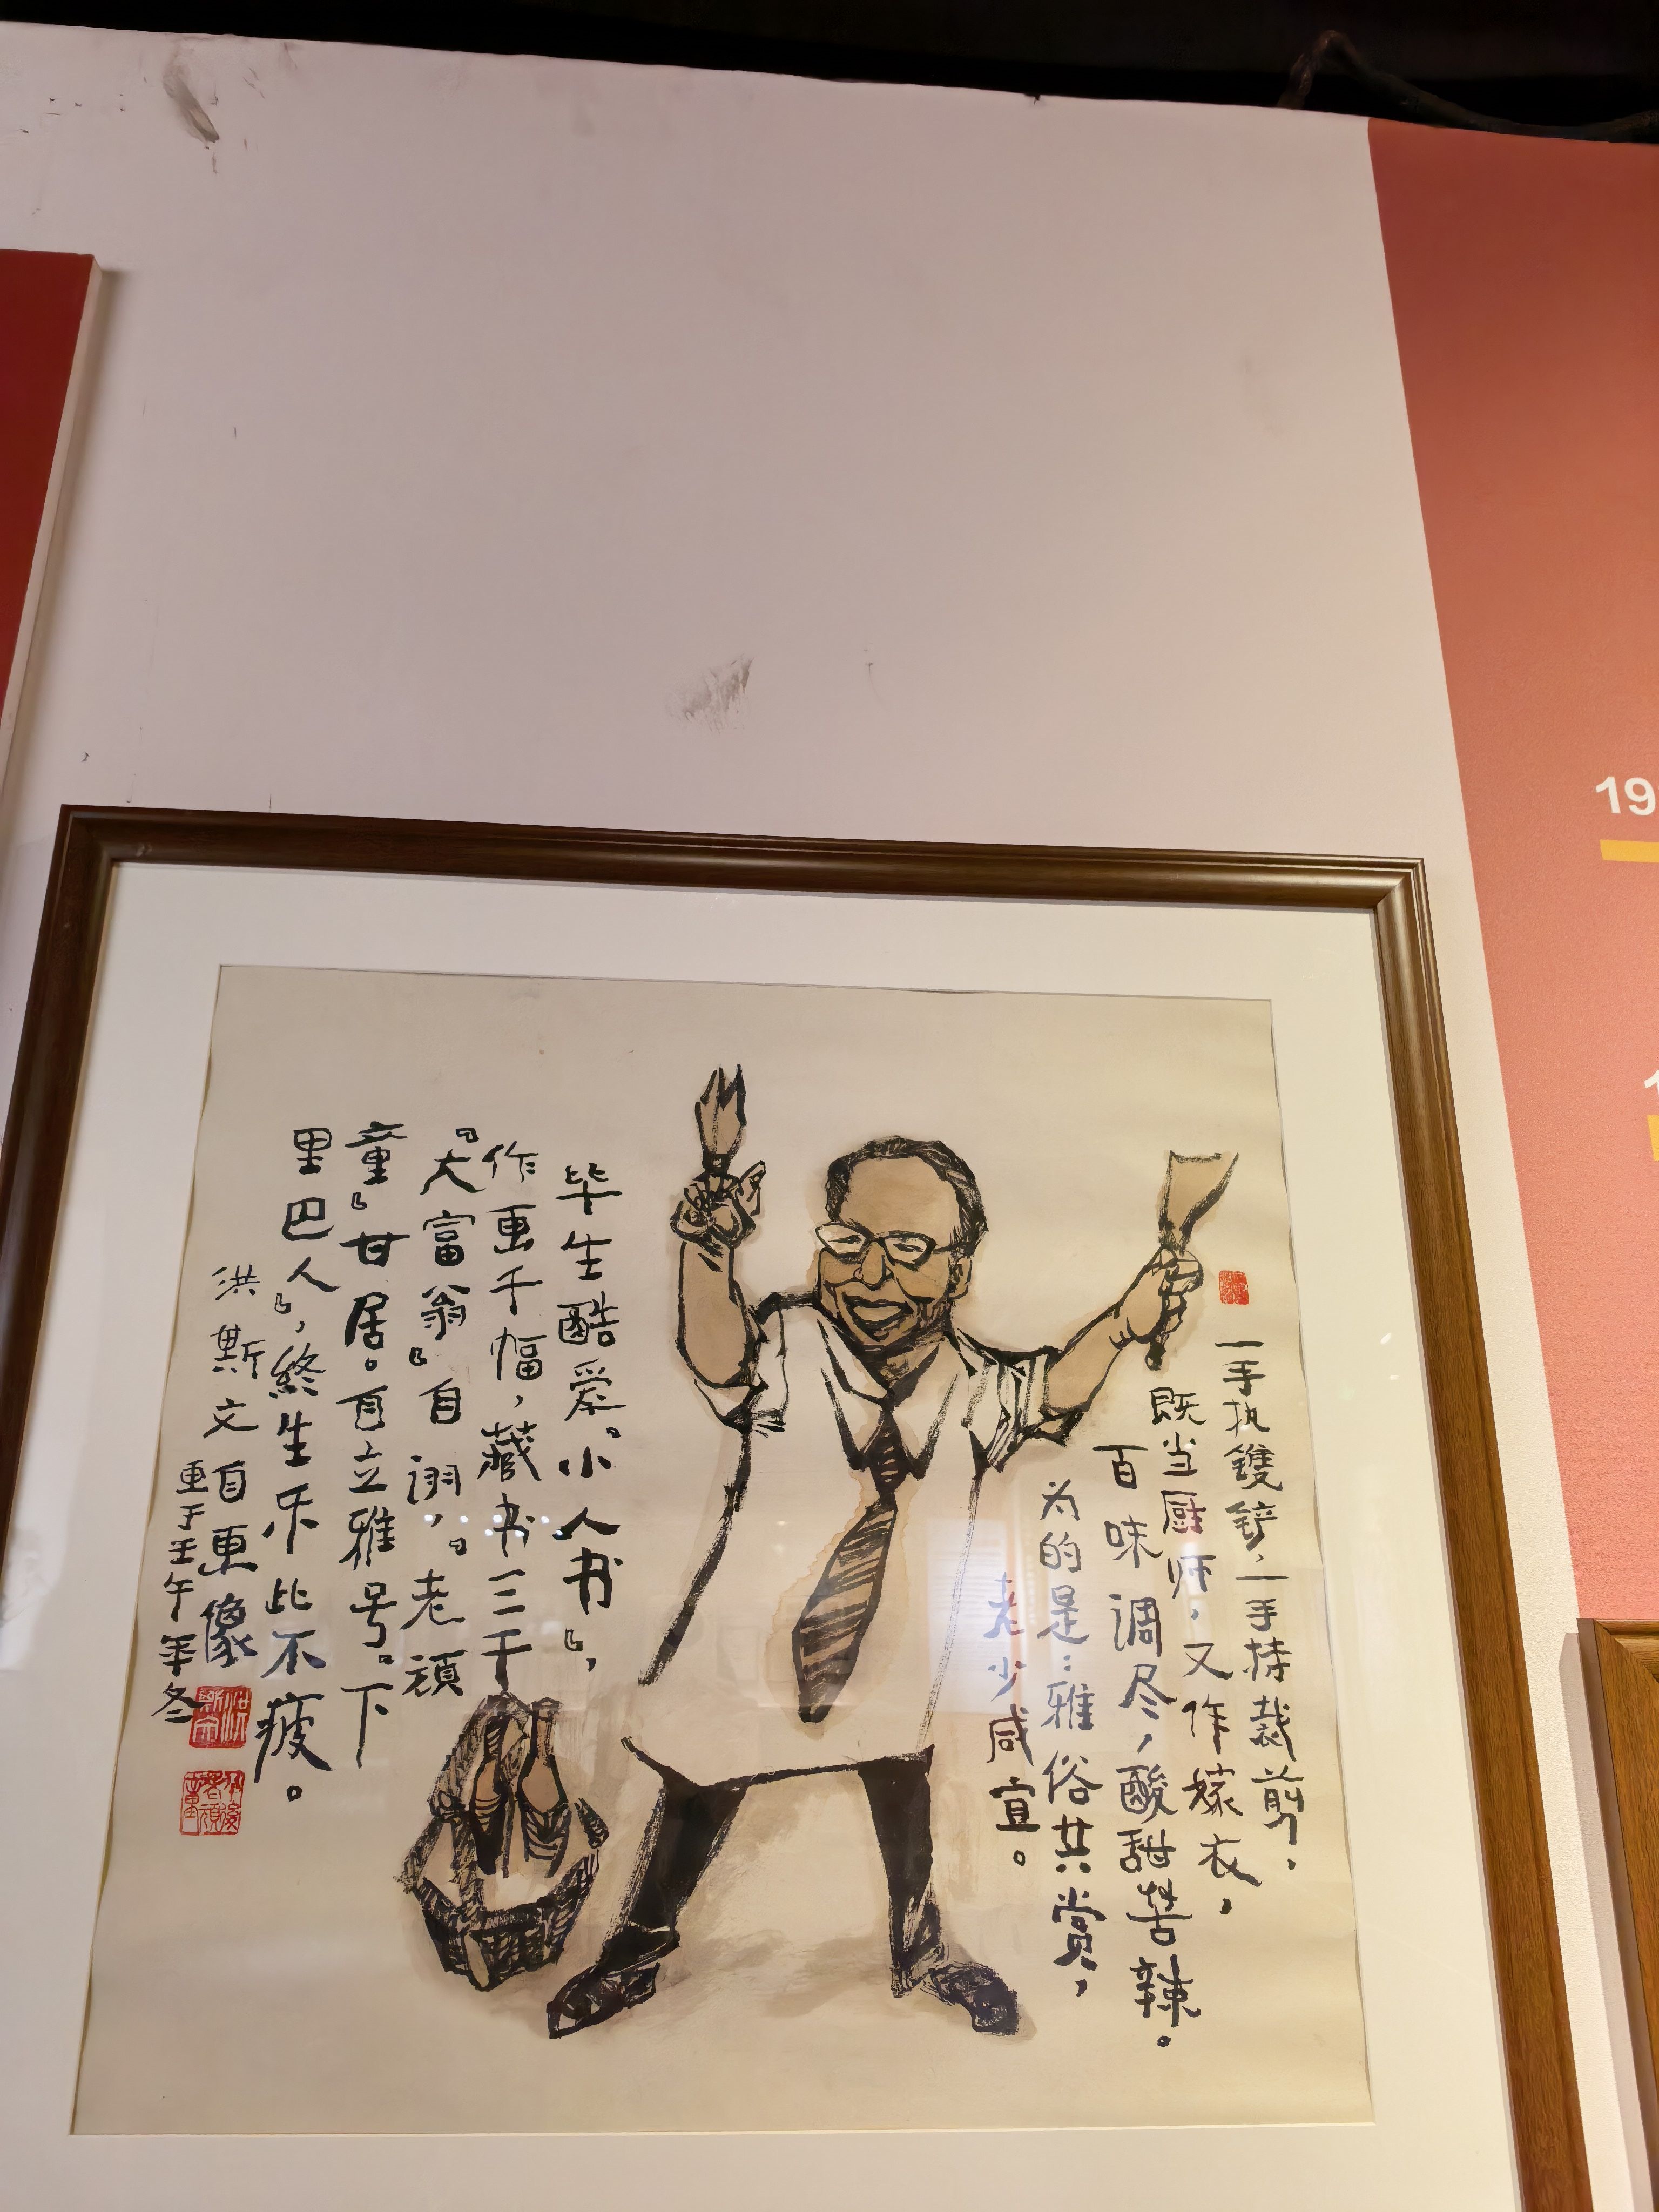 一手执镬铲，一手持裁剪，
既当厨师，又作嫁衣，
百味调尽，酸甜苦辣。
为的是：雅俗共赏，
老少咸宜。
毕生酷爱『小人书』，
作画千幅，藏书三千
『大富翁』自诩，『老顽
童』甘居。自立雅号『下
里巴人』，终生乐此不疲。
洪斯文自画像
画于壬午年冬
19